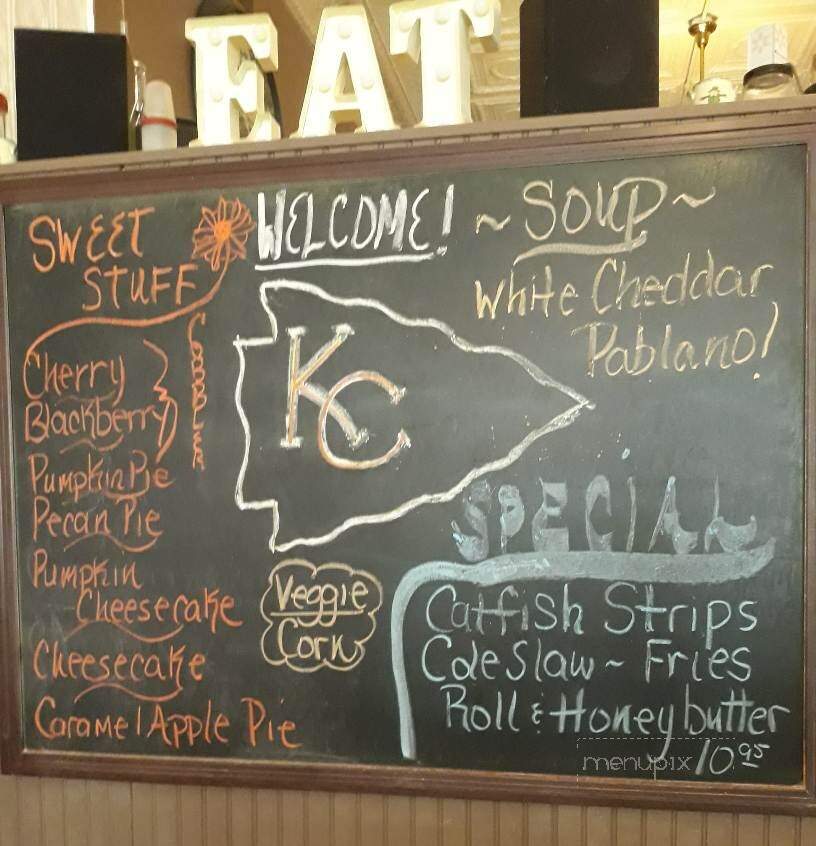 EAT
SWEET
STUFF
Cobbler
Cherry
Blackberry
Pumpkin Pie
Pecan Pie
Pumpkin
Cheesecake
Cheesecake
Caramel Apple Pie
WELCOME!
KC
Veggie
Corn
~ SOUP ~
White Cheddar
Pablano!
SPECIAL
Catfish Strips
Coleslaw ~ Fries
Roll & Honeybutter
10.95
menupix